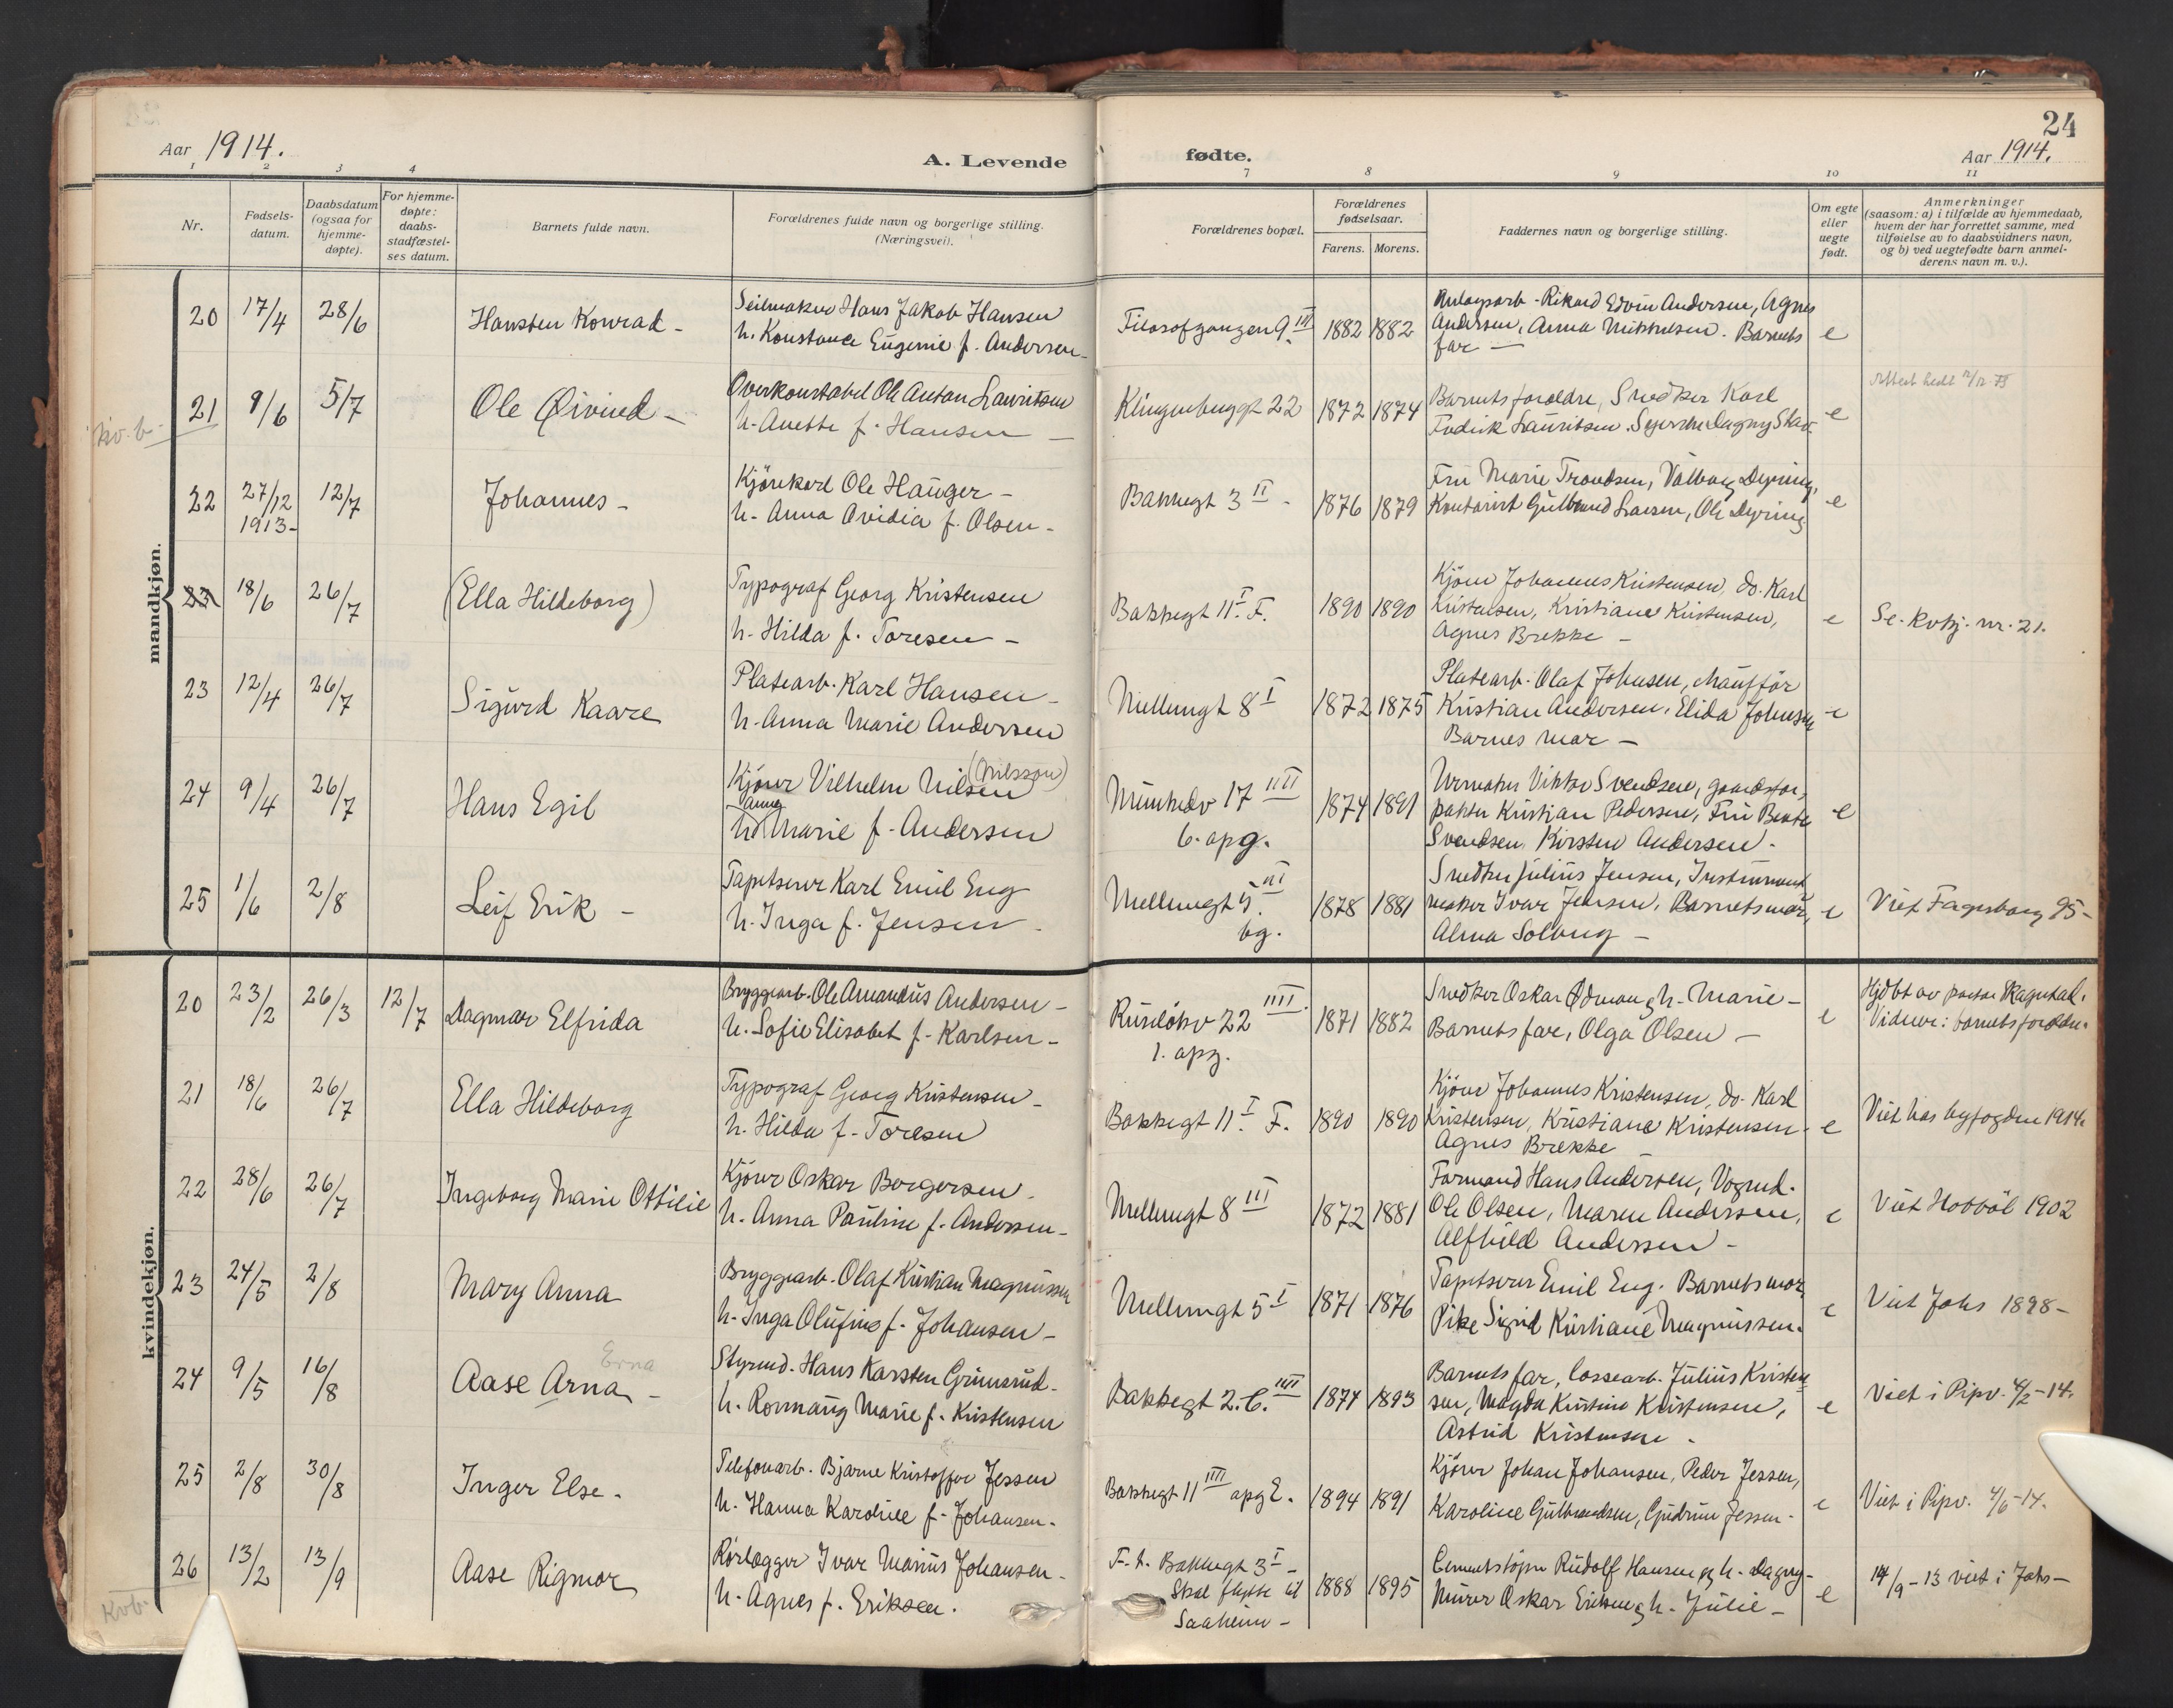 24
Aar 1914.
A. Levende fødte.
Aar 1914.
1 2 3 4 7 8 9 10 11
Nr.
Fødsels-
datum.
Daabsdatum
(ogsaa for
hjemme-
døpte).
For hjemme-
døpte:
daabs-
stadfæstel-
ses datum.
Barnets fulde navn.
Forældrenes fulde navn og borgerlige stilling.
(Næringsvei).
Forældrenes bopæl.
Forældrenes
fødselsaar.
Farens. Morens.
Faddernes navn og borgerlige stilling.
Om egte
eller
uegte
født.
Anmerkninger
(saasom: a) i tilfælde av hjemmedaab,
hvem der har forrettet samme, med
tilføielse av to daabsvidners navn,
og b) ved uegtefødte barn anmel-
derens navn m. v.).
mandkjøn.
20 17/4 28/6 Hansten Konrad -
Seilmaker Hans Jakob Hansen
h. Konstance Eugenie f. Andersen -
Filosofgangen 9. III 1882 1882
Rikard Edvin Andersen, Agnes
Andersen, Anna Mikkelsen. Barnets
far — e
kv. b.
21 9/6 5/7 Ole Øivind -
Overkonstabel Ole Anton Lauritsen
h. Anette f. Hansen —
Klingenberggt 22 1872 1874
Barnets forældre, Snedker Karl
Fredrik Lauritsen. Dagny e
22 27/12 1913- 12/7 Johannes -
Kjørekarl Ole Hauger -
h. Anna Ovidia f. Olsen -
Bakkegt 3 II - 1876 1879
Fru Marie Trondsen, Valborg Dyring,
Kontorist Gulbrand Larsen, Ole Dyring e
18/6 26/7 (Ella Hildeborg)
Typograf Georg Kristensen
h. Hilda f. Toresen -
Bakkegt 11 I. F. 1890 1890
Kjører Johannes Kristensen, do. Karl
Kristensen, Kristiane Kristensen,
Agnes Brekke - e
Se. kvkj. nr. 21.
23 12/4 26/7 Sigurd Kaare
Platearb. Karl Hansen -
h. Anna Marie Andersen
Mellemgt 8 I 1872 1875
Platearb. Olaf Johnsen, chauffør
Kristian Andersen, Elida Johnsen
Barnes mor - e
24 9/4 26/7 Hans Egil
(Nilsson)
Kjører Vilhelm Nilsen
Anna
h. Marie f. Andersen
Munkedv 17 IIII
6. opg. 1874 1891
Urmaker Viktor Svendsen, gaardsfor-
pakter Kristian Pedersen, Fru Beate
Svendsen, Kirsten Andersen - e
25 1/6 2/8 Leif Erik -
Tapetserer Karl Emil Eng
h. Inga f. Jensen -
Mellemgt 5. III
bg. 1878 1881
Snedker Julius Jensen, Instrument
maker Ivar Jensen, Barnets mor,
Alma Solberg - e
Viet Fagerborg 95-
kvindekjøn.
20 23/2 26/3 12/7 Dagmar Elfrida
Bryggearb. Ole Amandus Andersen -
h. Sofie Elisabet f. Karlsen -
Ruseløkv 22 IIII.
1. opg. 1871 1882
Snedker Oskar Ødman og h. Marie -
Barnets far, Olga Olsen - e
Hjdbt av pastor Skagestad.
Vidner: barnets forældre.
21 18/6 26/7 Ella Hildeborg
Typograf Georg Kristensen -
h. Hilda f. Toresen
Bakkegt 11. I F. 1890 1890
Kjører Johannes Kristensen, do. Karl
Kristensen, Kristiane Kristensen -
Agnes Brekke e
Viet hos byfogden 1914.
22 28/6 26/7 Ingeborg Marie Ottilie
Kjører Oskar Borgersen -
h. Anna Pauline f. Andersen -
Mellemgt 8 III 1872 1881
Formand Hans Andersen, Vognmd.
Ole Olsen, Maren Andersen,
Alfhild Andersen - e
Viet Hobbøl 1902
23 24/5 2/8 Mary Anna
Bryggearb. Olaf Kristian Magnussen
h. Inga Olufine f. Johansen -
Mellemgt 5 I 1871 1876
Tapetserer Emil Eng. Barnets mor,
Pike Sigrid Kristiane Magnussen. e
Viet Johs 1898 -
24 9/5 16/8 Aase Arna - Erna
Styrmd. Hans Karsten Grimsrud -
h. Rormaug Marie f. Kristensen
Bakkegt 2. C. IIII 1874 1893
Barnets far, lossearb. Julius Kristen-
sen, Magda Kristine Kristensen,
Astrid Kristensen - e
Viet i Pipv. -14.
25 2/8 30/8 Inger Else -
Telefonarb. Bjarne Kristoffer Jessen
h. Hanna Karoline f. Johansen -
Bakkegt 11 IIII opg E. 1894 1891
Kjører Johan Johansen, Peder Jessen,
Karoline Gulbrandsen, Gudrun Jessen - e
Viet i Pipv. 4/6-14.
26 13/2 13/9 Aase Rigmor
Rørlægger Ivar Marius Johansen -
h. Agnes f. Eriksen.
F. t. Bakkegt 3 I -
Skal flytte til
Saaheim - 1888 1895
Cementstøper Rudolf Hansen og h. Dagny -
Murer Oskar Eriksen og h. Julie - e
14/9-13 viet i Johs -
Kvb.